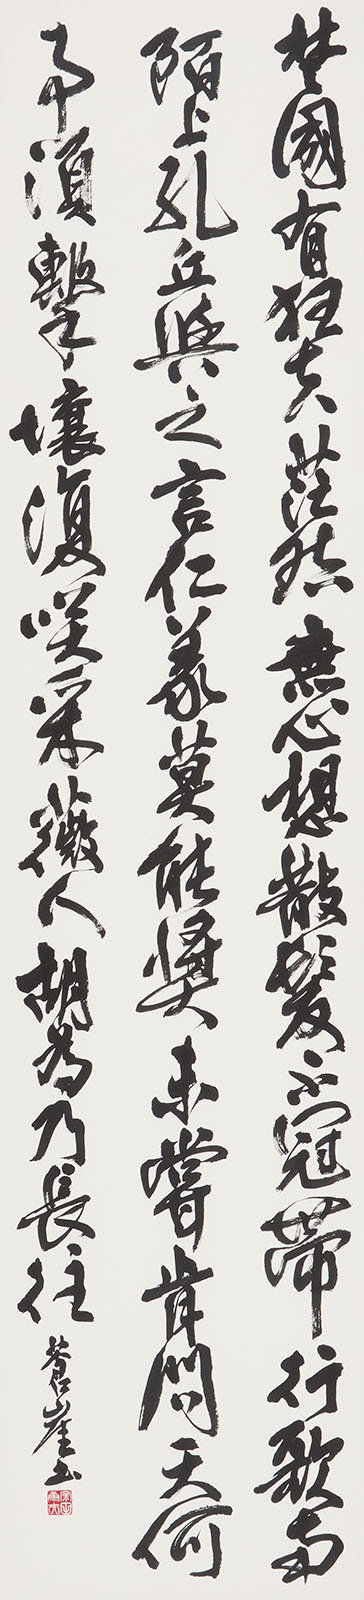 楚國有狂夫茫然無心想散髮不冠帶行歌南
陌上孔丘與之言仁義莫能奬未嘗肯問天何
事須擊壤復咲采薇人胡為乃長往
蒼崖書